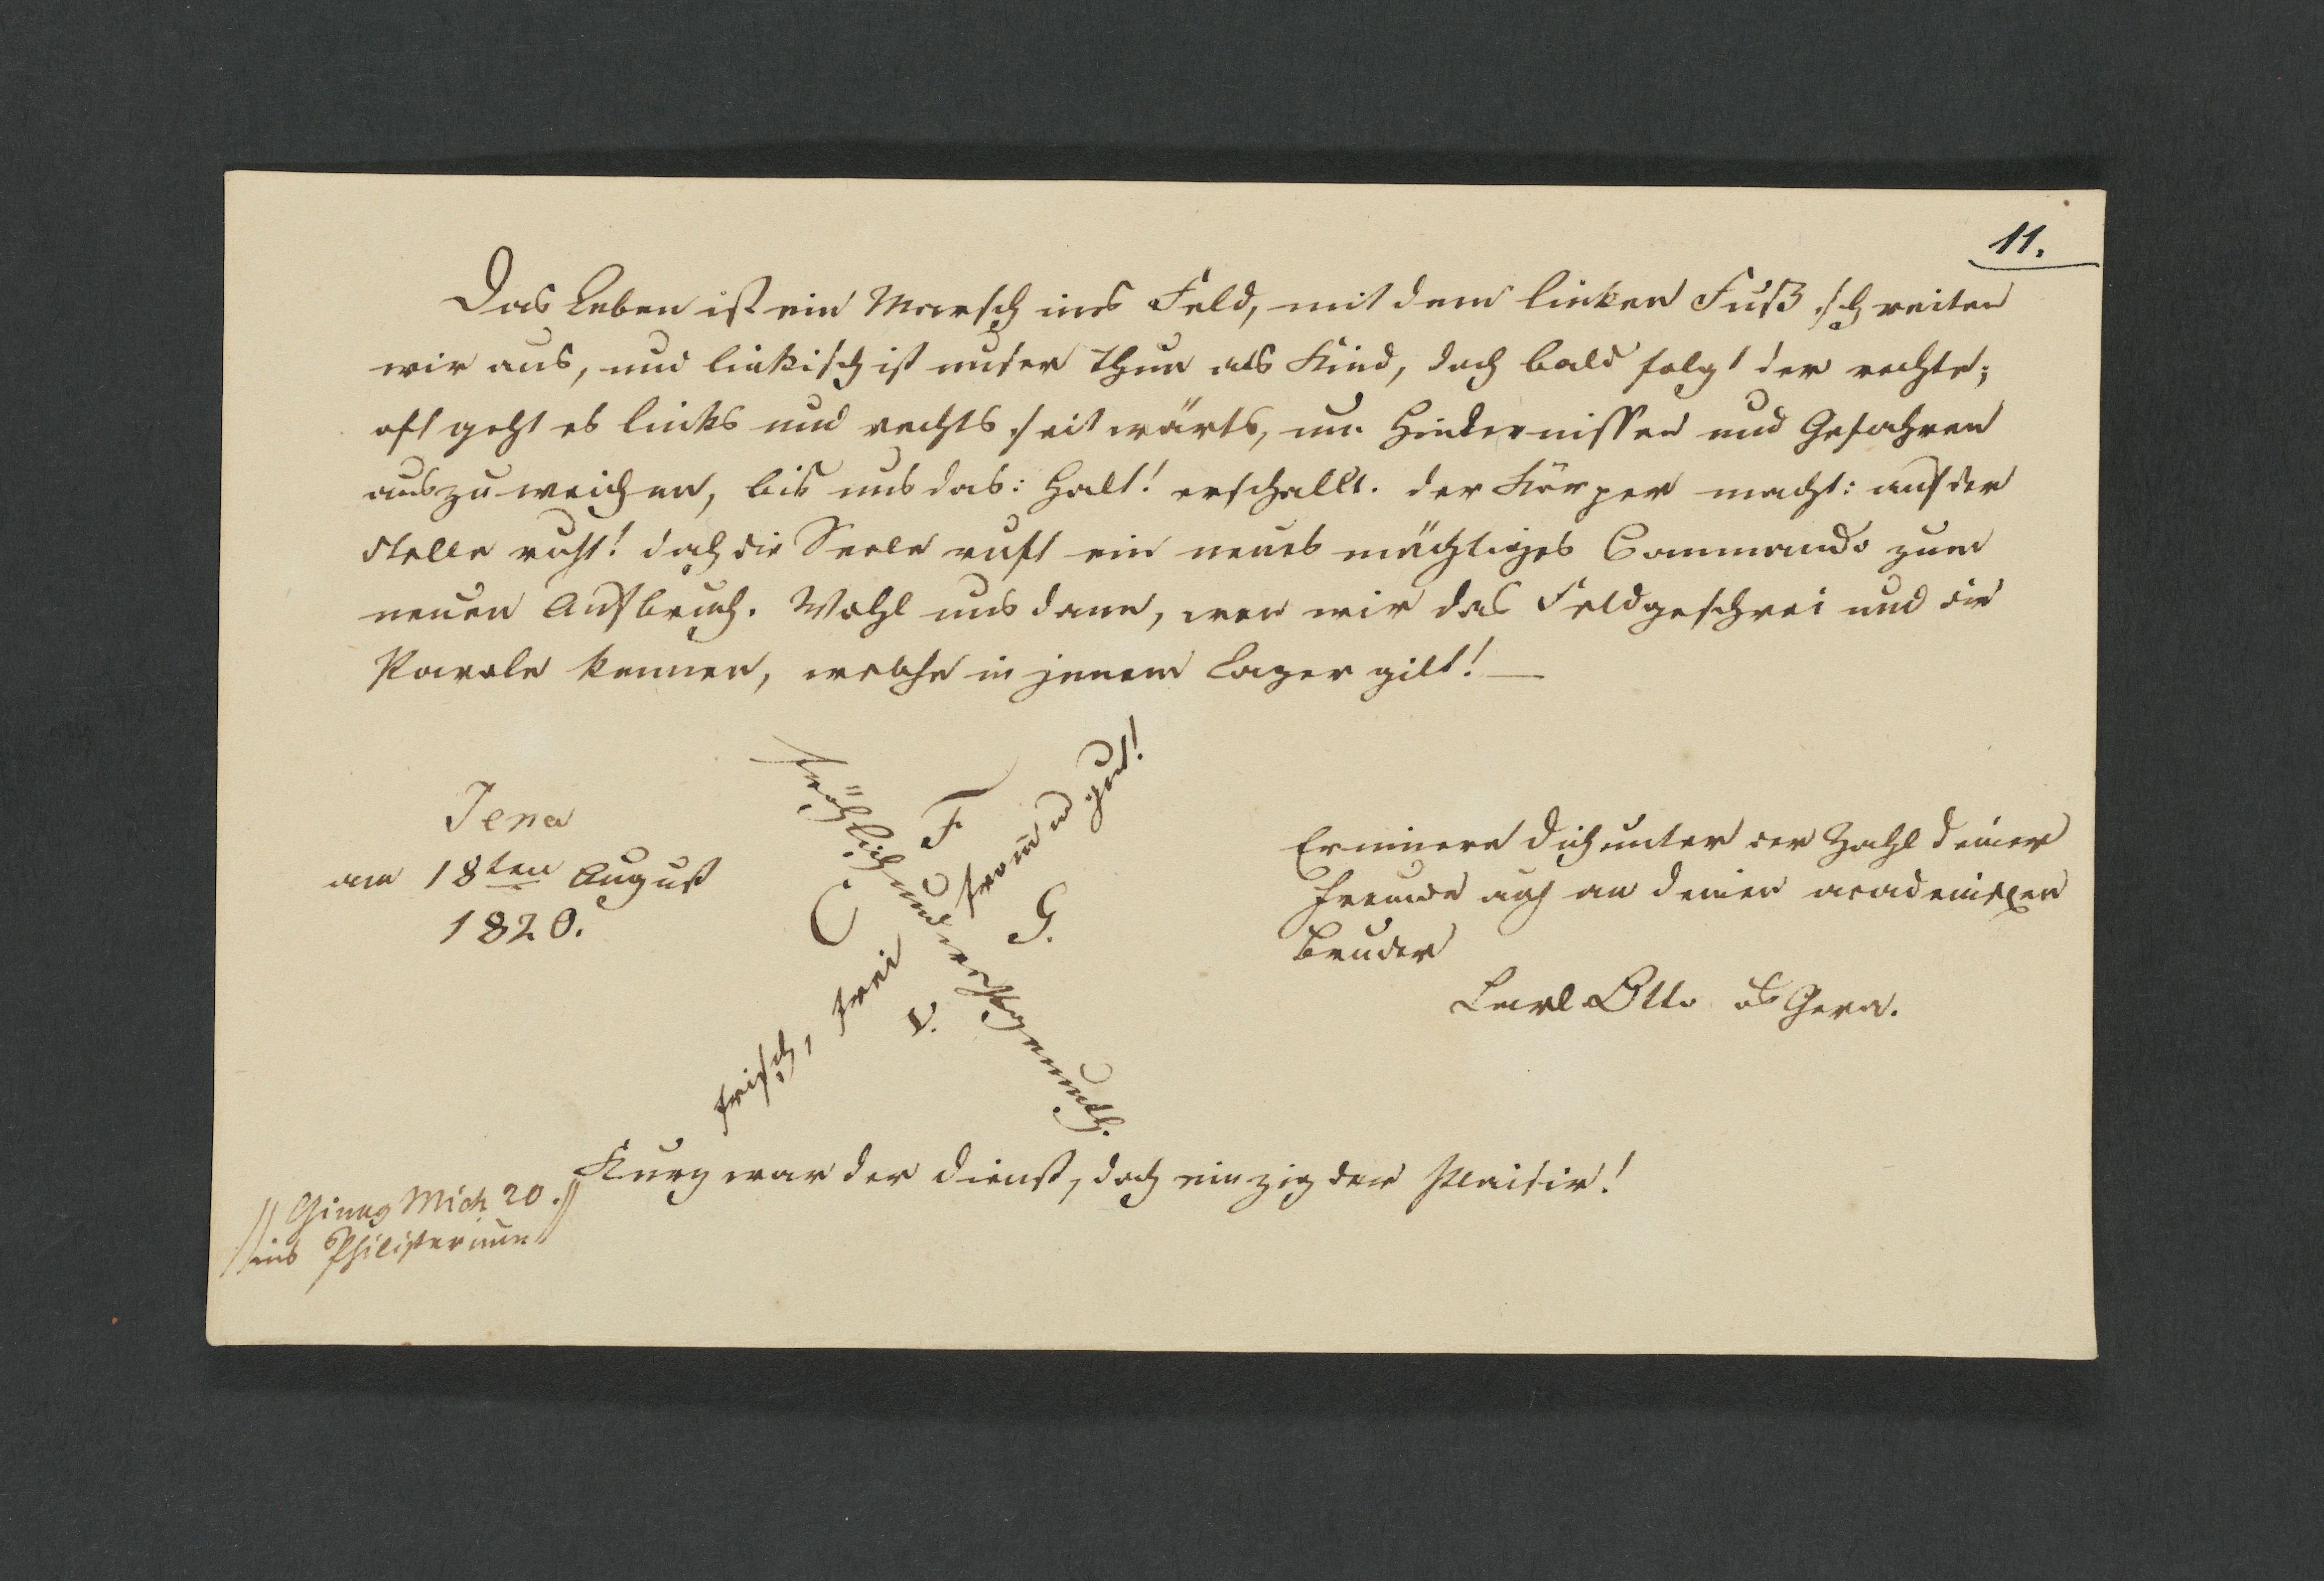 11.
Das Leben ist ein Marsch ins Feld, mit dem linken Fuß schreiten
wir aus, und linkisch ist unser Thun als Kind, doch bald folgt der rechte;
oft geht es links und rechts seitwärts, um Hindernissen und Gefahren
auszuweichen, bis uns das: Halt! erschallt. der Körper macht: auf der
Stelle ruht! doch die Seele ruft ein neues mächtiges Commando zum
neuen Aufbruch. Wohl uns dann, wen wir das Feldgeschrei und die
Parole kennen, welche in jenem Lager gilt! —
Jena
am 18ten August
1820.
fröhlich und ehrlich gemuth.
frisch, frei from u gut!
F
C
G.
V.
Erinnere dich unter der Zahl deiner
Freunde auch an deinen academischen
Bruder
Carl Otto aus Gera.
Kurz war der Dienst, doch einzig der Plaisir!
// Gieng Mich 20. //
// ins Philisterium